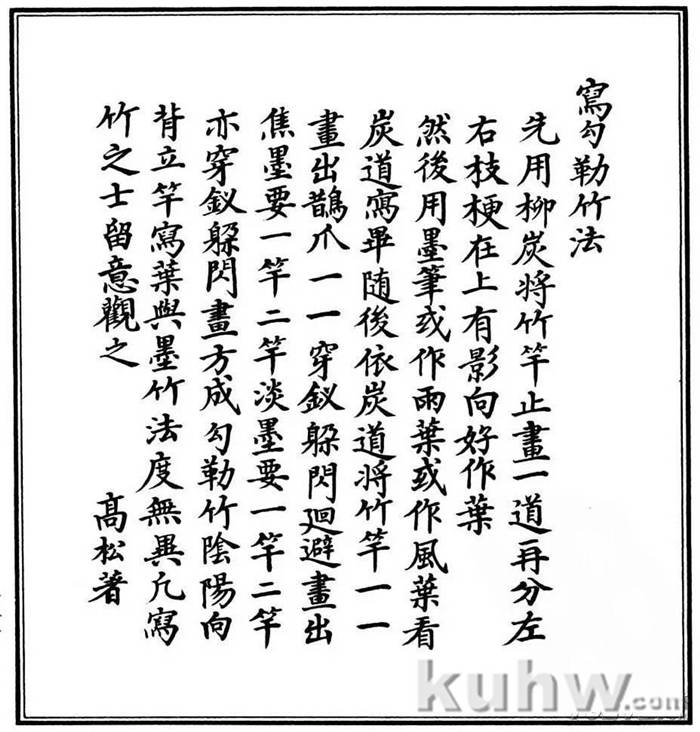 寫勾勒竹法
先用柳炭將竹竿止畫一道再分左
右枝梗在上有影向好作葉
然後用墨筆或作雨葉或作風葉看
炭道寫畢随後依炭道將竹竿一一
畫出鵲爪一一穿釵躲閃廻避畫出
焦墨要一竿二竿淡墨要一竿二竿
亦穿釵躲閃畫方成勾勒竹陰陽向
背立竿寫葉與墨竹法度無異凡寫
竹之士留意觀之
高松著
kuhw.com